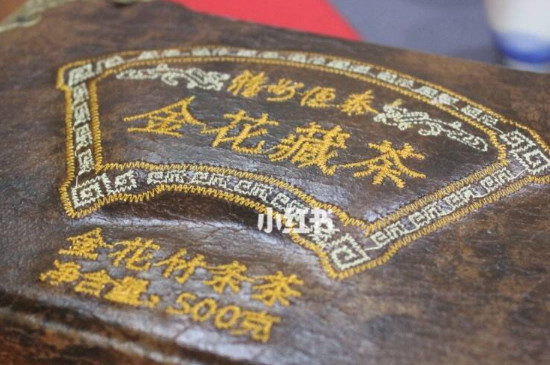 金花藏茶
小红书
金花竹条茶
净含量:500克